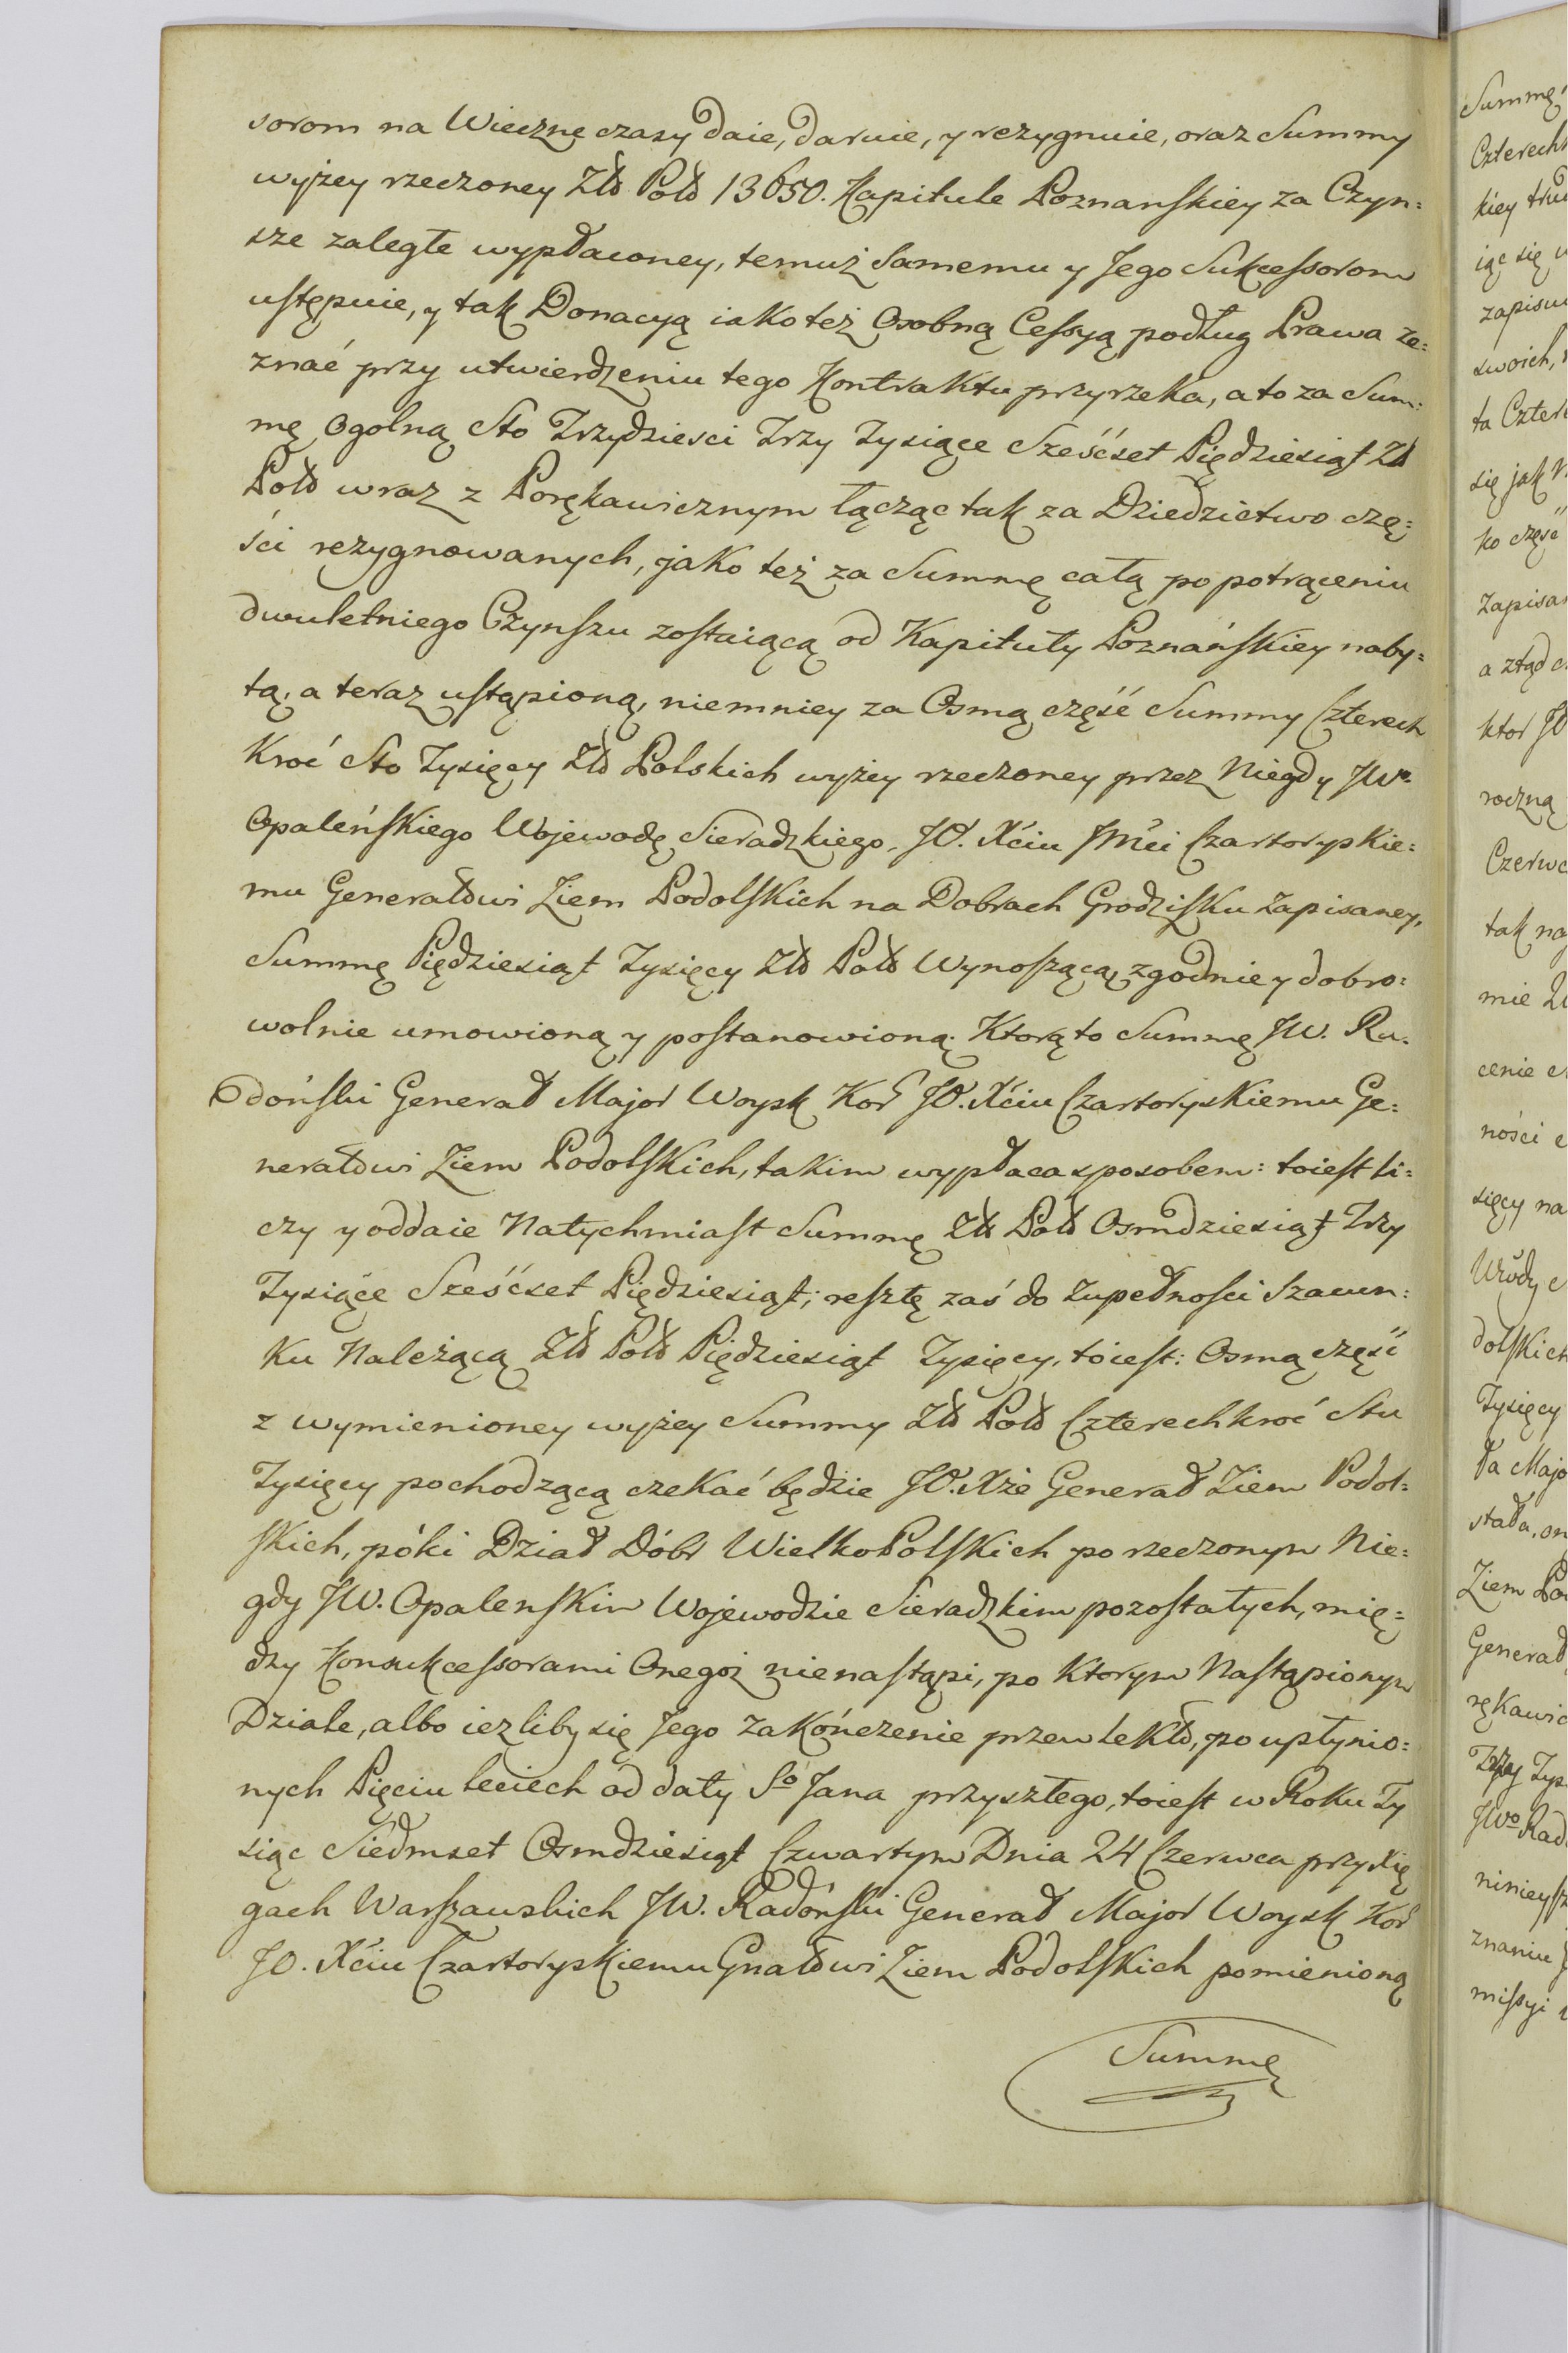 sorom na Wieczne czasy daie, daruie, y rezygnuie, oraz Summy
wyżey rzeczoney Zło Polo 13650. Kapitule Poznanskiey za Czyn=
sze zaległe wypłaconey, temuż Samemu y Jego Sukcessorom
ustępuie, y tak Donacyą iako też Osobną Cessyą podług Prawa ze=
znać przy utwierdzeniu tego Kontraktu przyrzeka, a to za Sum=
mę Ogolną Sto Trzydziesci Trzy Tysiące Sześćset Piędziesiąt Zł
Poło wraz z Porękawicznym łącząc tak za Dziedzictwo czę=
ści rezygnowanych, jako też za Summę całą po potrąceniu
dwuletniego Czynszu zostaiącą od Kapituły Poznańskiey naby=
tą, a teraz ustąpioną, niemniey za Osmą część Summy Czterech
Kroć Sto Tysięcy Zło Polskich wyżey rzeczoney przez Niegdy JWo
Opaleńskiego Wojewodę Sieradzkiego, JO. Xćiu Jmći Czartoryskie=
mu Generałowi Ziem Podolskich na Dobrach Grodzisku zapisaney,
Summę Piędziesiąt Tysięcy Zło Poło Wynoszącą, zgodnie y dobro=
wolnie umowioną y postanowioną. Ktorą to Summę JW. Ra=
doński Generał Major Woysk Kor JO. Xćiu Czartoryskiemu Ge=
nerałowi Ziem Podolskich, takim wypłaca sposobem: toiest li=
czy y oddaie Natychmiast Summę Zło Poło Osmdziesiąt Trzy
Tysiące Sześćset Piędziesiąt; resztę zaś do zupełnosci Szacun=
ku Należącą Zło Poło Piędziesiąt Tysięcy, toiest: Osmą część
z wymienioney wyżey Summy Zło Poło Czterechkroć Stu
Tysięcy pochodzącą czekać będzie JO. Xże Generał Ziem Podol=
skich, póki Dział Dóbr WielkoPolskich po rzeczonym Nie=
gdy JW. Opalenskim Wojewodzie Sieradzkim pozostałych, mię=
dzy Konsukcessorami Onegoż nienastąpi, po Ktorym Nastąpionym
Dziale, albo iezliby się Jego zakończenie przewlekło, po upłynio=
nych Pięciu leciech od daty So Jana przyszłego, toiest w Roku Ty
siąc Siedmset Osmdziesiąt Czwartym Dnia 24 Czerwca przy Xię
gach Warszawskich JW. Radoński Generał Major Woysk Kor
JO. Xćiu Czartoryskiemu Gnałowi Ziem Podolskich pomienioną
Summę
Summę
Czterech
kiey
iąc się
zapisu
swoich,
ta Czter
się jak
ko część
zapisa
a ztąd
ktor JO
roczną
Czerwc
tak na
mie
cenie
ności
sięcy na
dolskich
Tysięcy
ła Majo
stała,
Ziem Po
Generał
rękawic
Trzy Tys
JWo Rad
ninieysz
znaniu
missyi